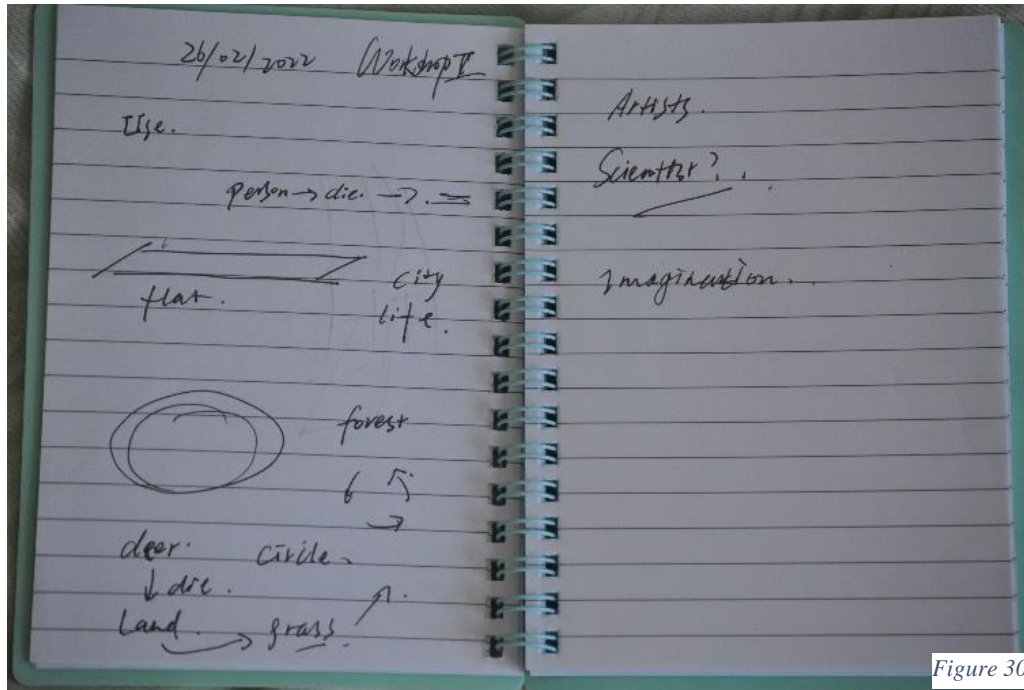 26/02/2022 Workshop II
Else.
person → die. → . =
flat.
city
life.
forest
deer. circle.
↓ die.
Land. → grass.
Artists.
Scientist?.
Imagination..
Figure 30